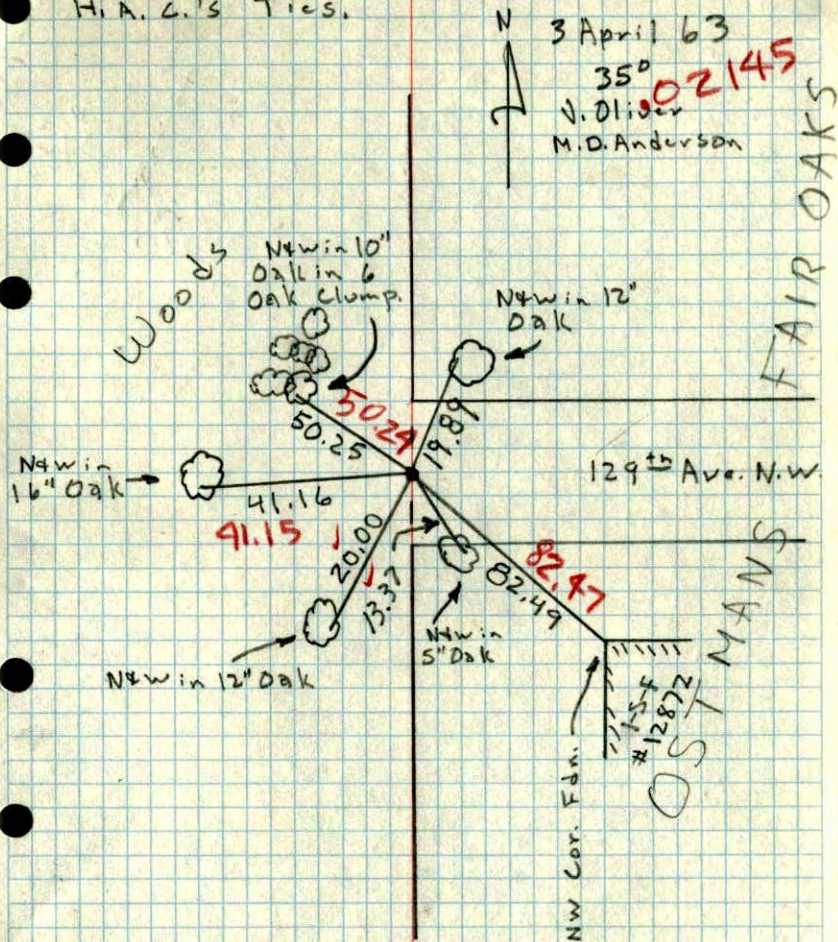 H. A. C.'s Ties.
N
3 April 63
35°
02145
V. Oliver
M.D. Anderson
FAIR OAKS
Woods
N&W in 10"
Oak in 6
Oak Clump.
N&W in 12"
Oak
50.24
50.25
19.89
N&W in
16" Oak
41.16
41.15
129th Ave. N.W.
20.00
13.37
82.47
82.49
N&W in
5" Oak
N&W in 12" Oak
1-S-F
#12872
OSTMANS
NW Cor. Fdn.